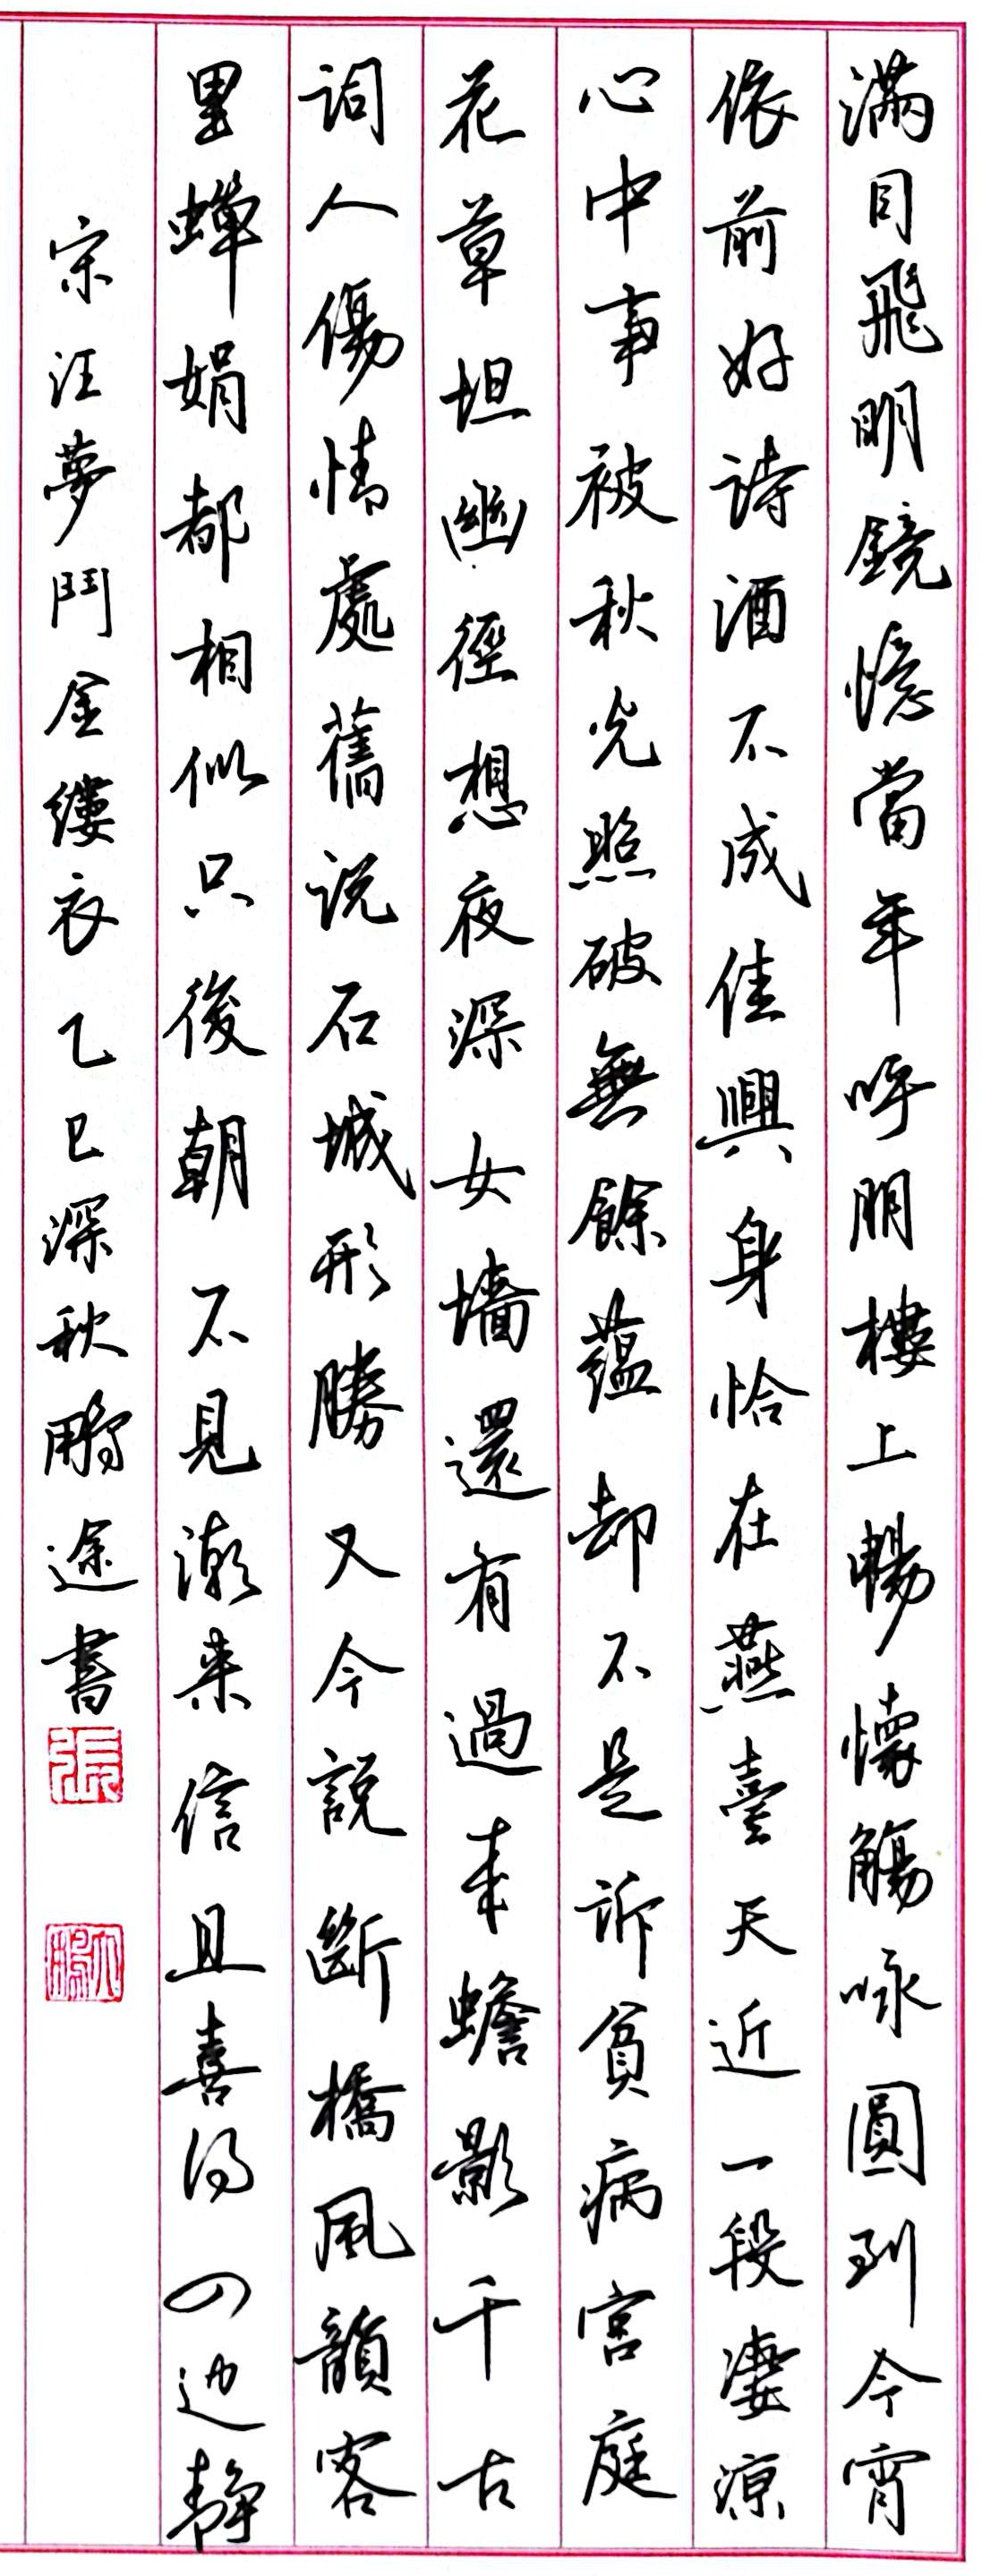 滿目飛明鏡憶當年呼朋樓上暢懷觴咏圓到今宵
依前好詩酒不成佳興身恰在燕臺天近一段凄涼
心中事被秋光照破無餘蘊却不是訴貧病宮庭
花草坦幽徑想夜深女墻還有過來蟾影千古
詞人傷情處舊說石城形勝又今說斷橋風韻客
里蟬娟都相似只後朝不見潮来信且喜得四边靜
宋汪夢鬥金缕衣乙巳深秋鵬途書
張